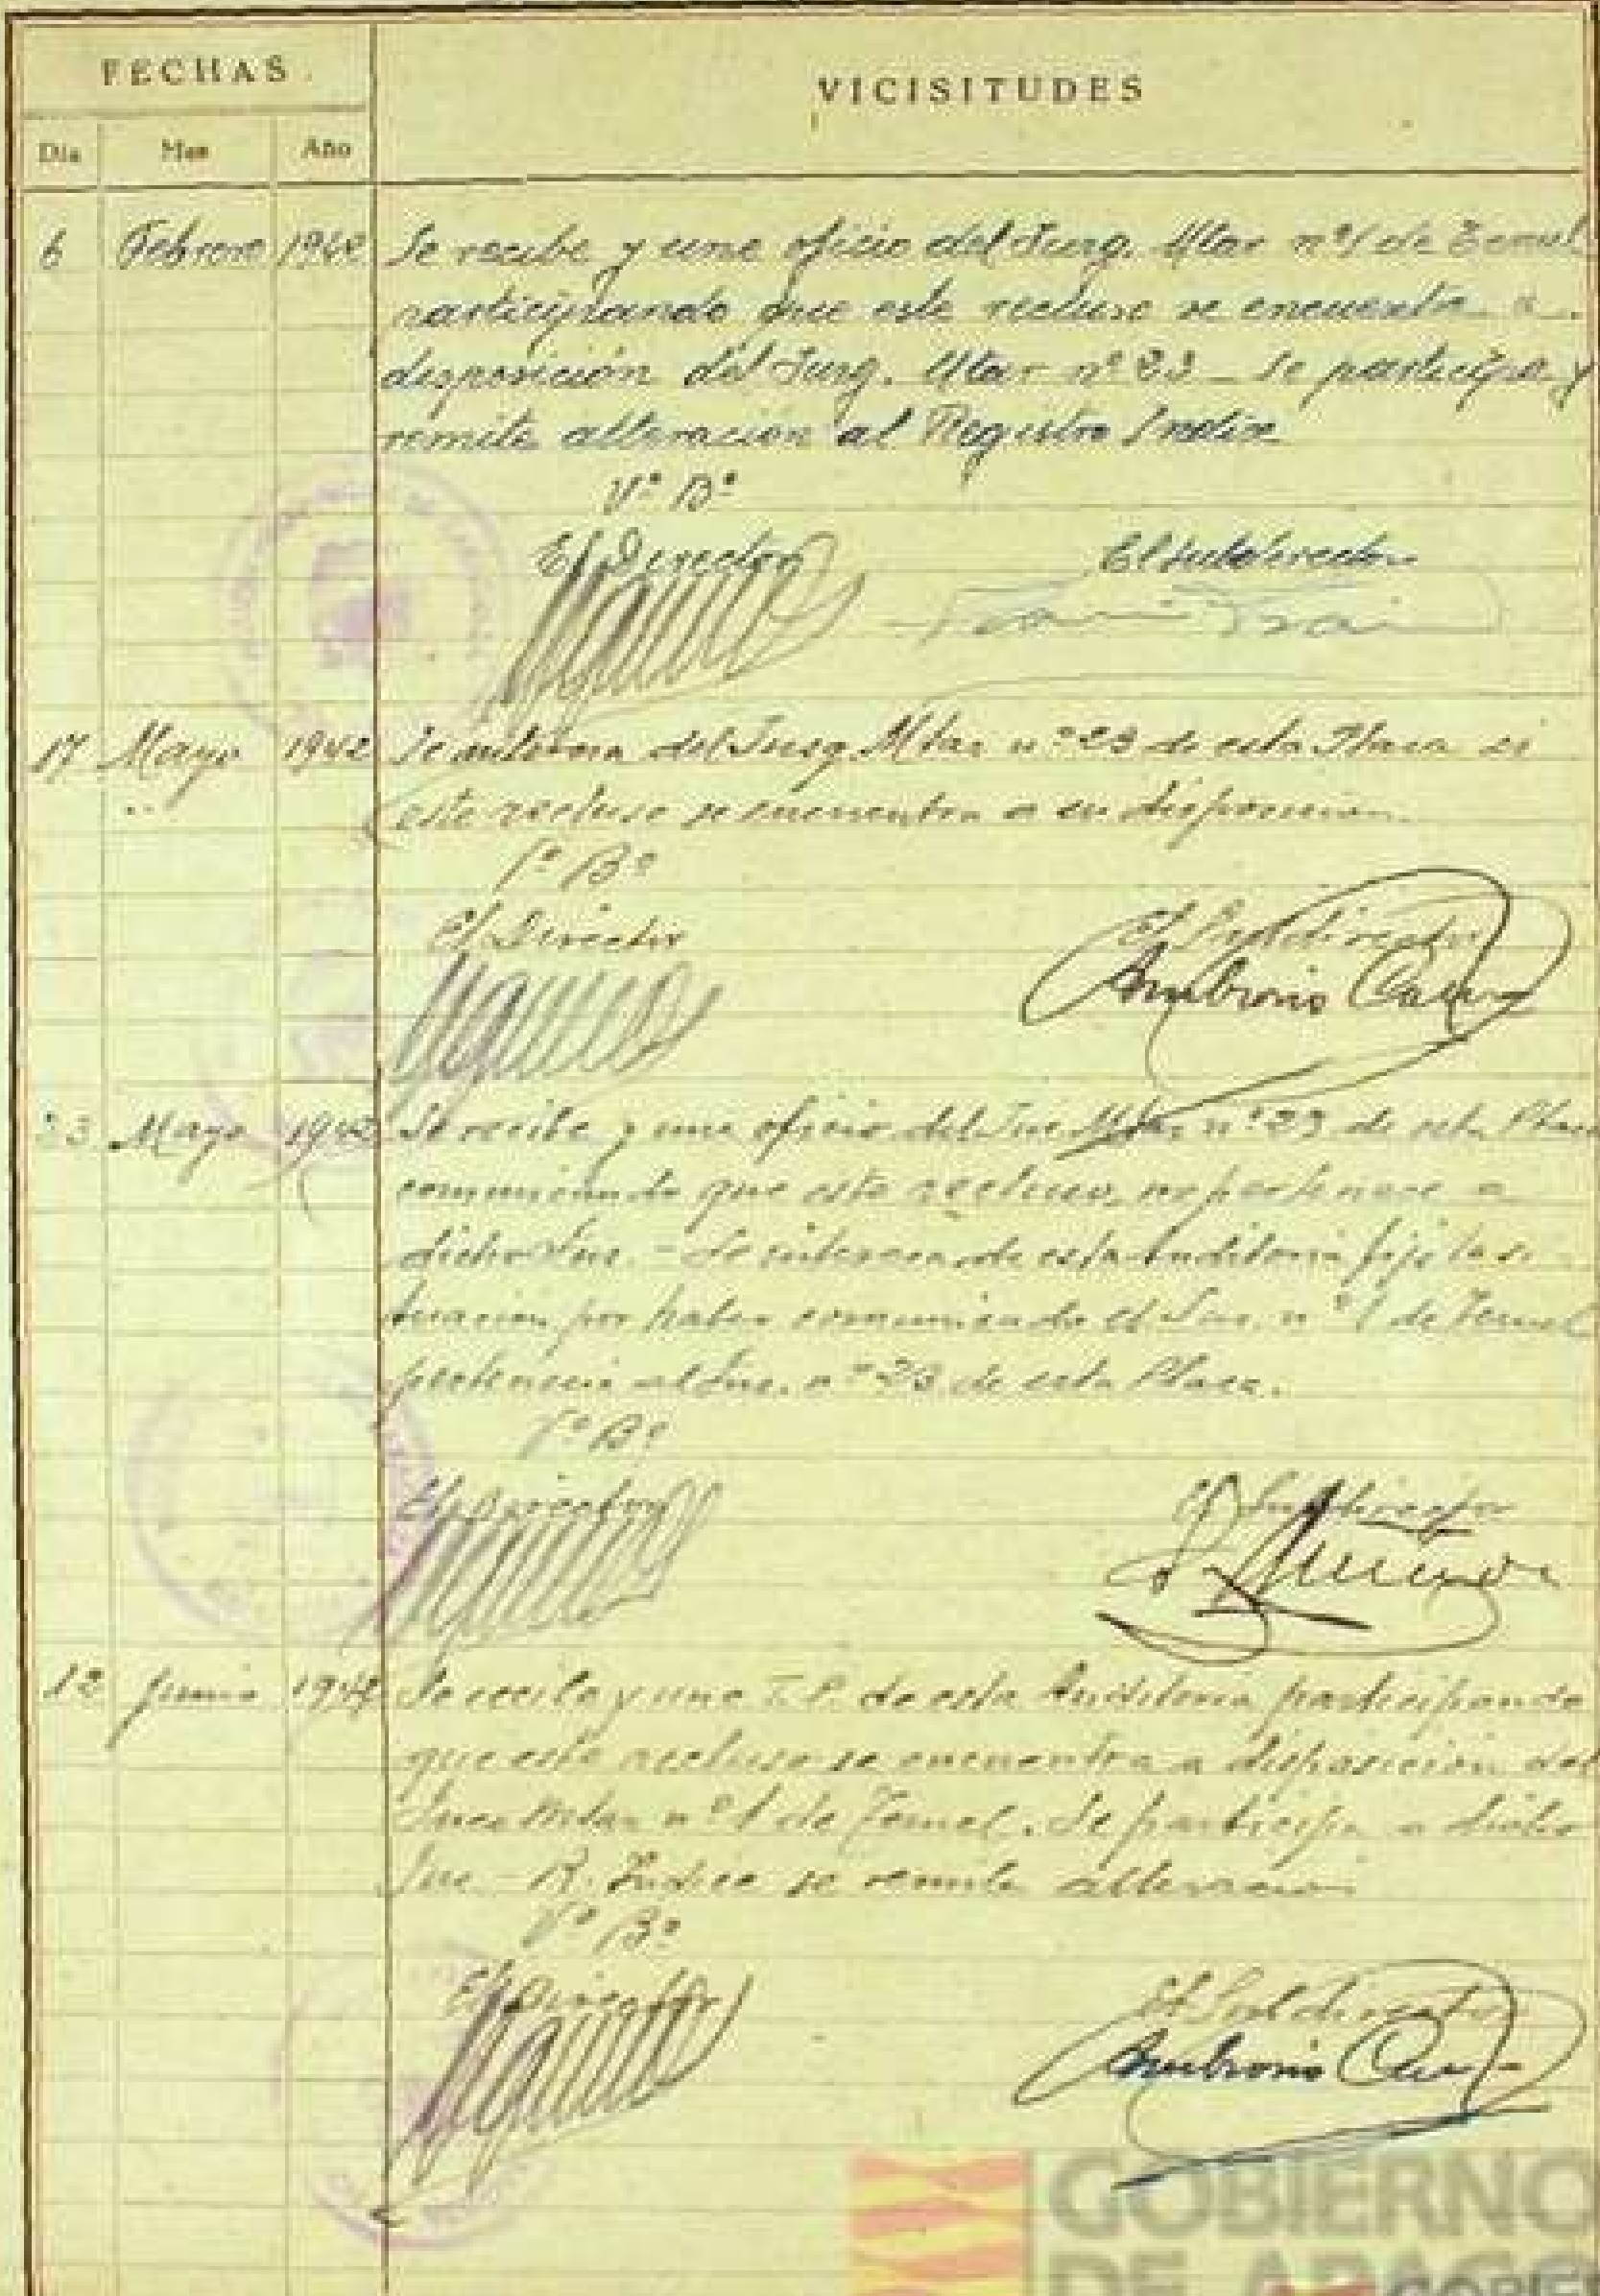 FECHAS
VICISITUDES
Dia Mes Año
6 Febrero 1942 Se recibe y une oficio del Juzg. Mtar nº 1 de Teruel
participando que este recluso se encuentra a
disposición del Juzg. Mtar nº 23 – Se participa y
remite alteración al Registro Indice
Vº Bº
El Director El subdirector
17 Mayo 1942 Se interesa del Juzg. Mtar nº 23 de esta Plaza si
este recluso se encuentra a su disposición.
Vº Bº
El Director El Subdirector
Ambrosio
23 Mayo 1942 Se recibe y une oficio del Juz Mtar nº 23 de esta Plaza
comunicando que este recluso no pertenece a
dicho Juz. – Se interesa de esta Auditoria fije la si
tuación por haber comunicado el Juz. nº 1 de Teruel
pertenecia al Juz. nº 23 de esta Plaza.
Vº Bº
El Director El Subdirector
12 Junio 1942 Se recibe y une T.P. de esta Auditoria participando
que este recluso se encuentra a disposición del
Juez Mtar nº 1 de Teruel. Se participa a dicho
Juz – R. Indice se remite alteración
Vº Bº
El Director El Subdirector
Ambrosio
GOBIERNO
DE ARAGO